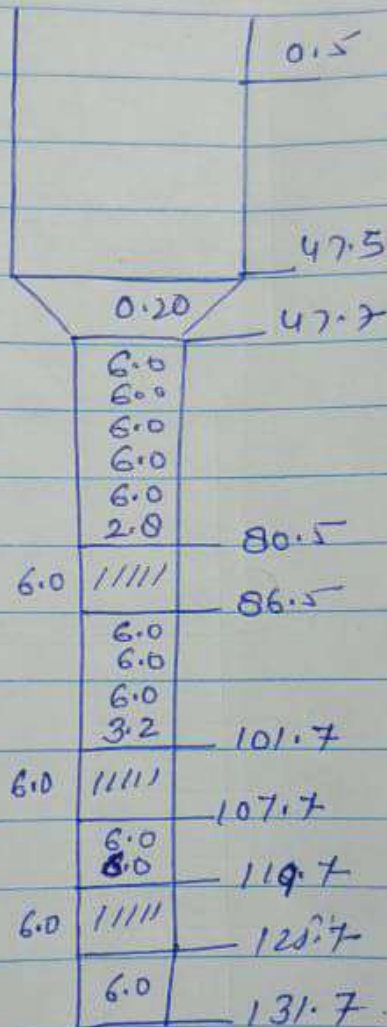 0.5
47.5
0.20
47.7
6.0
6.0
6.0
6.0
6.0
2.8
80.5
6.0 /////
86.5
6.0
6.0
6.0
3.2
101.7
6.0 /////
107.7
6.0
6.0
119.7
6.0 /////
125.7
6.0
131.7